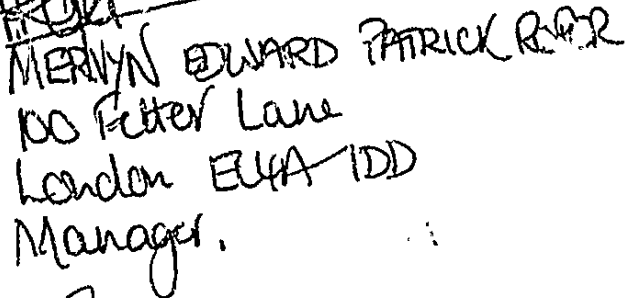 MERVYN EDWARD PATRICK
100 Fetter Lane
London EC4A 1DD
Manager.